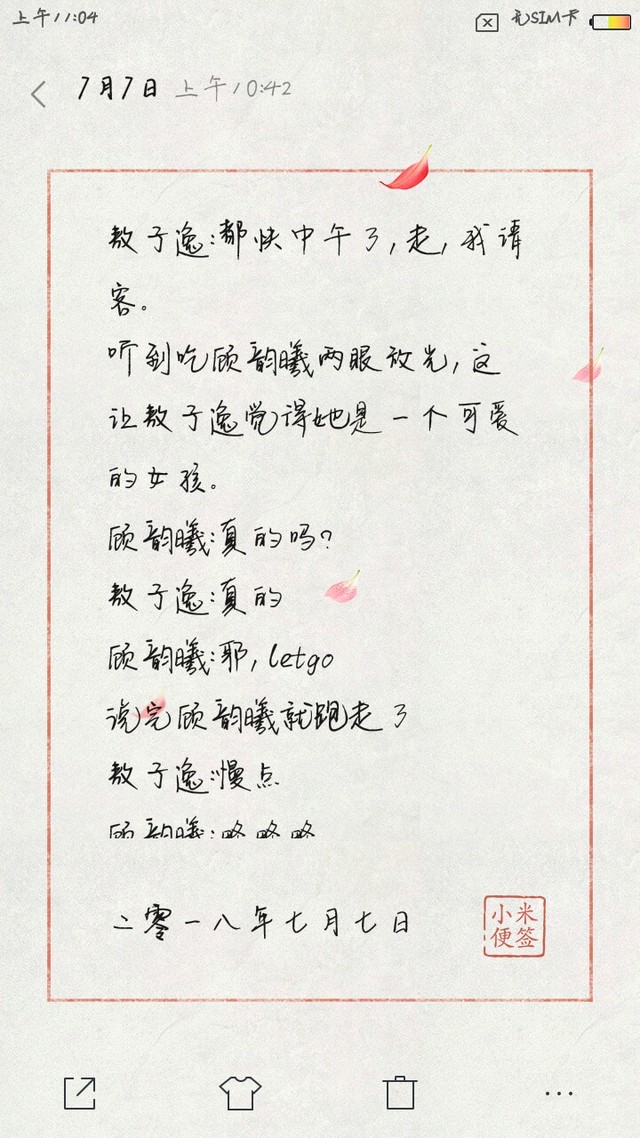 上午11:04
无SIM卡
7月7日 上午10:42
敖子逸:都快中午了,走,我请
客。
听到吃顾韵曦两眼放光,这
让敖子逸觉得她是一个可爱
的女孩。
顾韵曦:真的吗?
敖子逸:真的
顾韵曦:耶,letgo
说完顾韵曦就跑走了
敖子逸:慢点
顾韵曦:略略略
二零一八年七月七日
小米
便签